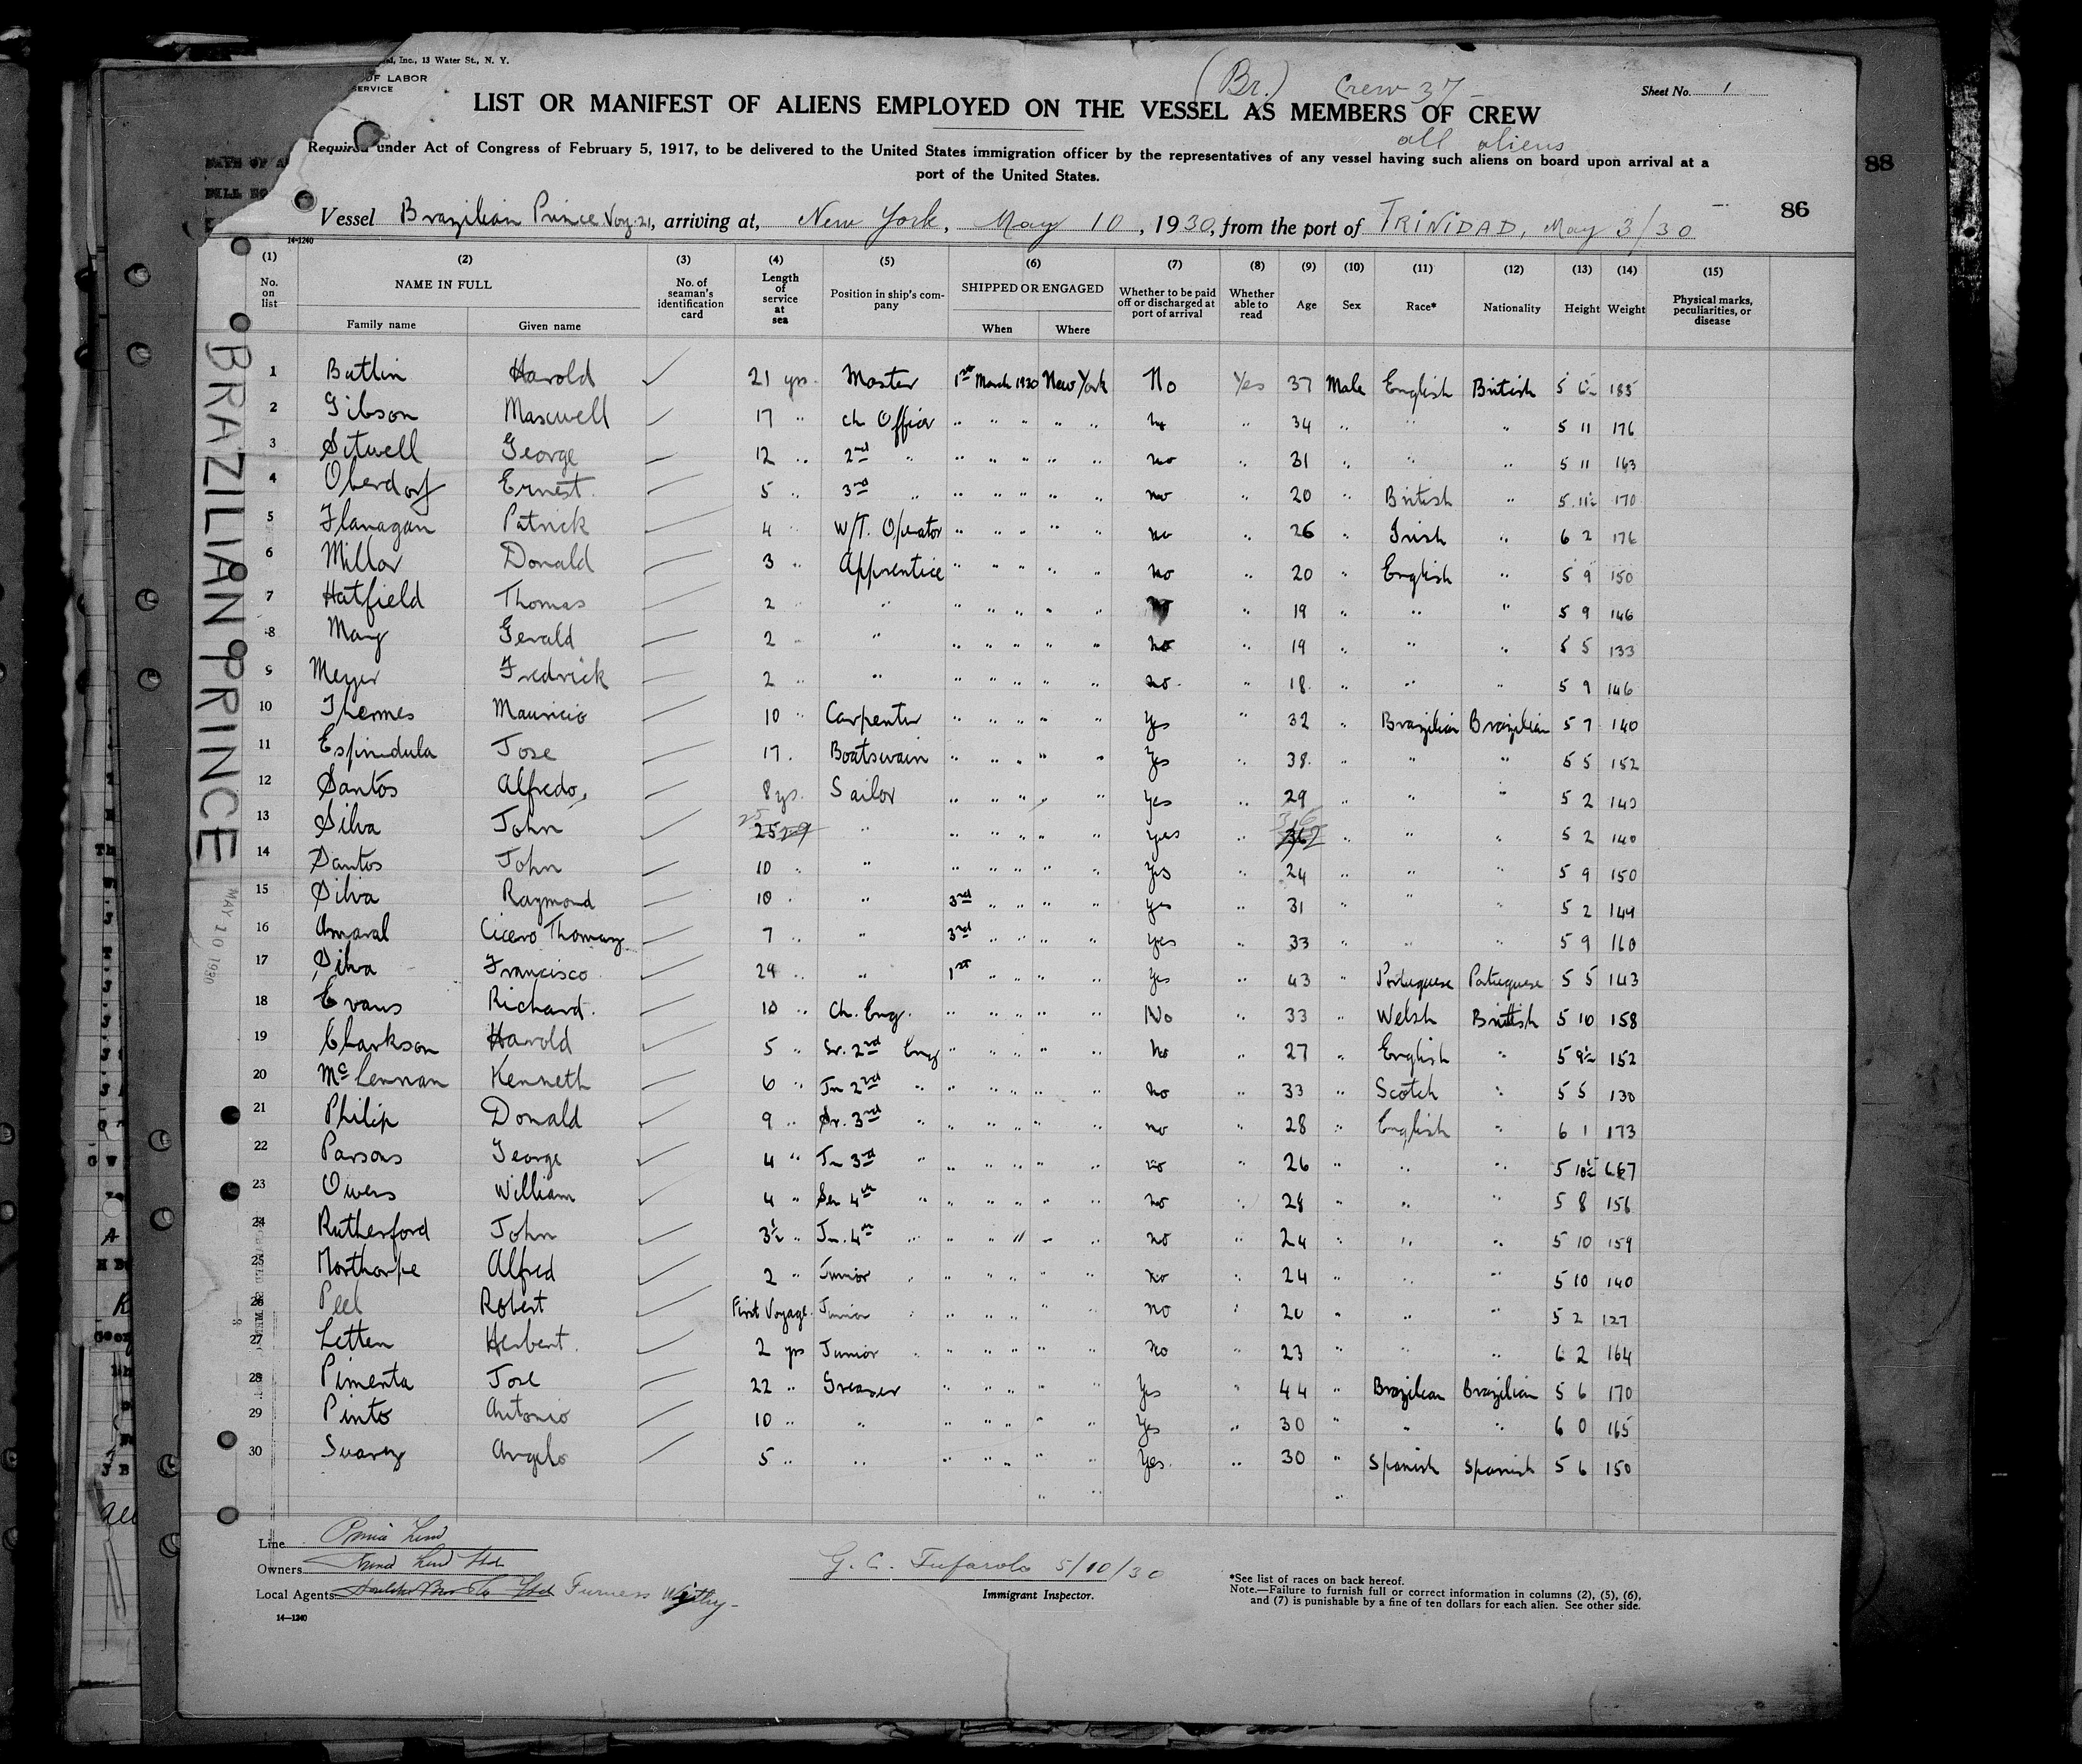 nd, Inc., 13 Water St., N. Y.
OF LABOR
SERVICE
(Br.) Crew 37 -
Sheet No. 1
LIST OR MANIFEST OF ALIENS EMPLOYED ON THE VESSEL AS MEMBERS OF CREW
all aliens
Required under Act of Congress of February 5, 1917, to be delivered to the United States immigration officer by the representatives of any vessel having such aliens on board upon arrival at a
port of the United States.
88
86
Vessel Brazilian Prince Voy. 21, arriving at, New York, May 10, 1930, from the port of TRINIDAD, May 3/30
14-1240
(1) (2) (3) (4) (5) (6) (7) (8) (9) (10) (11) (12) (13) (14) (15)
No. on list NAME IN FULL Family name Given name No. of seaman's identification card Length of service at sea Position in ship's company SHIPPED OR ENGAGED When Where Whether to be paid off or discharged at port of arrival Whether able to read Age Sex Race* Nationality Height Weight Physical marks, peculiarities, or disease
BRAZILIAN PRINCE
MAY 10 1930
1 Butlin Harold ✓ 21 yrs. Master 1st March 1930 New York No Yes 37 Male English British 5 6½ 185
2 Gibson Maxwell ✓ 17 " Ch Officer " " " " " No " 34 " " " 5 11 176
3 Sitwell George ✓ 12 " 2nd " " " " " " no " 31 " " " 5 11 163
4 Oberdorf Ernest ✓ 5 " 3rd " " " " " " no " 20 " British " 5 11½ 170
5 Flanagan Patrick ✓ 4 " W/T. Operator " " " " " no " 26 " Irish " 6 2 176
6 Millar Donald ✓ 3 " Apprentice " " " " " no " 20 " English " 5 9 150
7 Hatfield Thomas ✓ 2 " " " " " " " " 19 " " " 5 9 146
8 Gerald ✓ 2 " " " " " " " no " 19 " " " 5 5 133
9 Meyer Fredrick ✓ 2 " " " " " " " no " 18 " " " 5 9 146
10 Thermes Mauricio ✓ 10 " Carpenter " " " " " Yes " 32 " Brazilian Brazilian 5 7 140
11 Espindula Jose ✓ 17 " Boatswain " " " " " Yes " 38 " " " 5 5 152
12 Santos Alfredo, ✓ 8 ys. Sailor " " " " " Yes " 29 " " " 5 2
13 Silva John ✓ 25 " " " " " " Yes " 36 " " " 5 2 140
14 Santos John ✓ 10 " " " " " " " Yes " 24 " " " 5 9 150
15 Silva Raymond ✓ 10 " " 3rd " " " " yes " 31 " " " 5 2 149
16 Amaral Cicero Thomaz ✓ 7 " " 3rd " " " " Yes " 33 " " " 5 9 160
17 Silva Francisco ✓ 29 " " 1st " " " " Yes " 43 " Portuguese Portuguese 5 5 143
18 Evans Richard ✓ 10 " Ch. Eng. " " " " " No " 33 " Welsh British 5 10 158
19 Clarkson Harold ✓ 5 " Sr. 2nd Eng " " " " " No " 27 " English " 5 9½ 152
20 McLennan Kenneth ✓ 6 " Jn 2nd " " " " " " no " 33 " Scotch " 5 5 130
21 Philip Donald ✓ 9 " Sr. 3rd " " " " " " no " 28 " English " 6 1 173
22 Parsons George ✓ 4 " Jn 3rd " " " " " " no " 26 " " " 5 10½ 167
23 Owens William ✓ 4 " Sen 4th " " " " " " no " 28 " " " 5 8 156
24 Rutherford John ✓ 3½ " Jn. 4th " " " " " " no " 24 " " " 5 10 159
25 Northorpe Alfred ✓ 2 " Junior " " " " " " no " 24 " " " 5 10 140
26 Peel Robert ✓ First Voyage Junior " " " " " " no " 20 " " 5 2 127
27 Letten Herbert ✓ 2 yrs Junior " " " " " " no " 23 " " " 6 2 164
28 Pimenta Jose ✓ 22 " Greaser " " " " " Yes " 44 " Brazilian Brazilian 5 6 170
29 Pinto Antonio ✓ 10 " " " " " " " Yes " 30 " " " 6 0 165
30 Suarez Angelo ✓ 5 " " " " " " Yes " 30 " Spanish Spanish 5 6 150
Line Prince Line
Owners Prince Line Ltd
Local Agents Furness Withy -
G. C. Tufarolo 5/10/30
Immigrant Inspector.
*See list of races on back hereof.
Note.—Failure to furnish full or correct information in columns (2), (5), (6),
and (7) is punishable by a fine of ten dollars for each alien. See other side.
14—1240